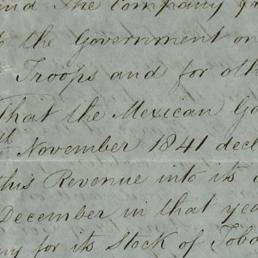 and The Company
the Government on
Troops and for oth
That the Mexican Go
th November 1841 decl
this Revenue into its
December in that yea
for its Stock of Toba